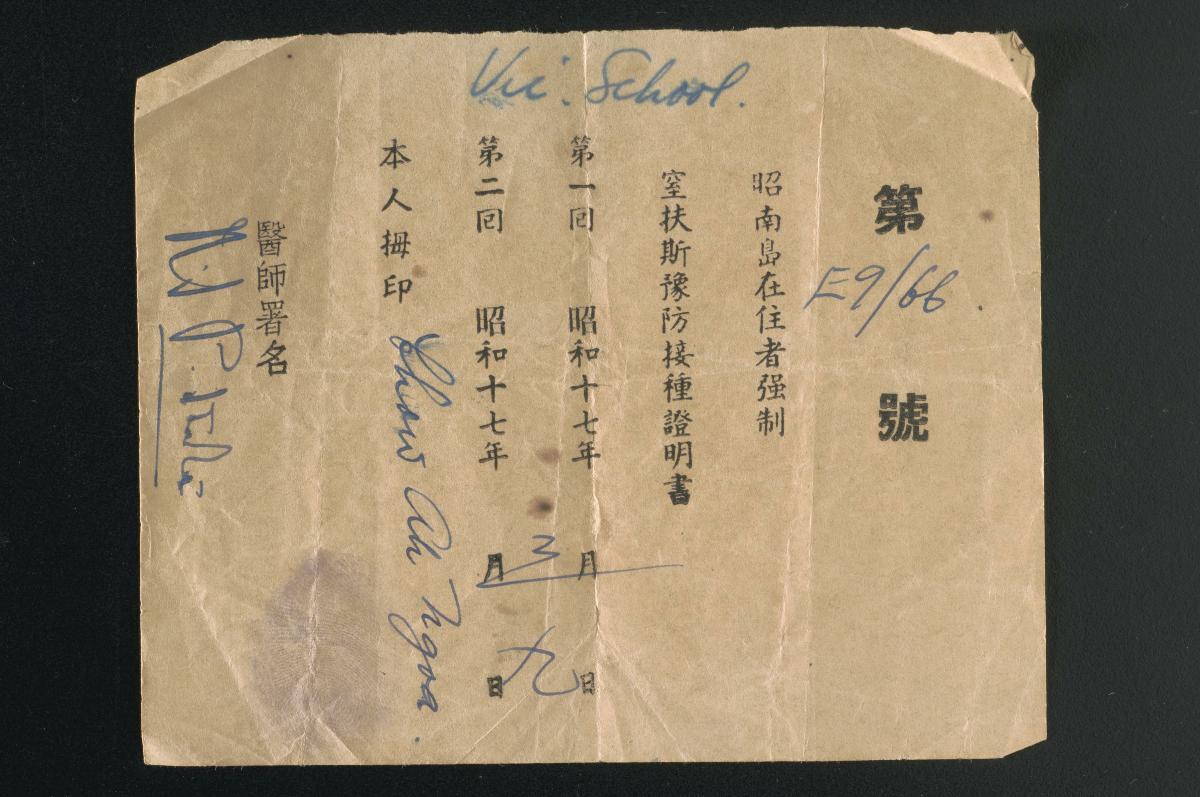 Vic. School.
第 E9/66. 號
昭南島在住者强制
窒扶斯豫防接種證明書
第一回 昭和十七年 三月 九日
第二回 昭和十七年 月 日
本人拇印
Show Ah Ngoa.
醫師署名